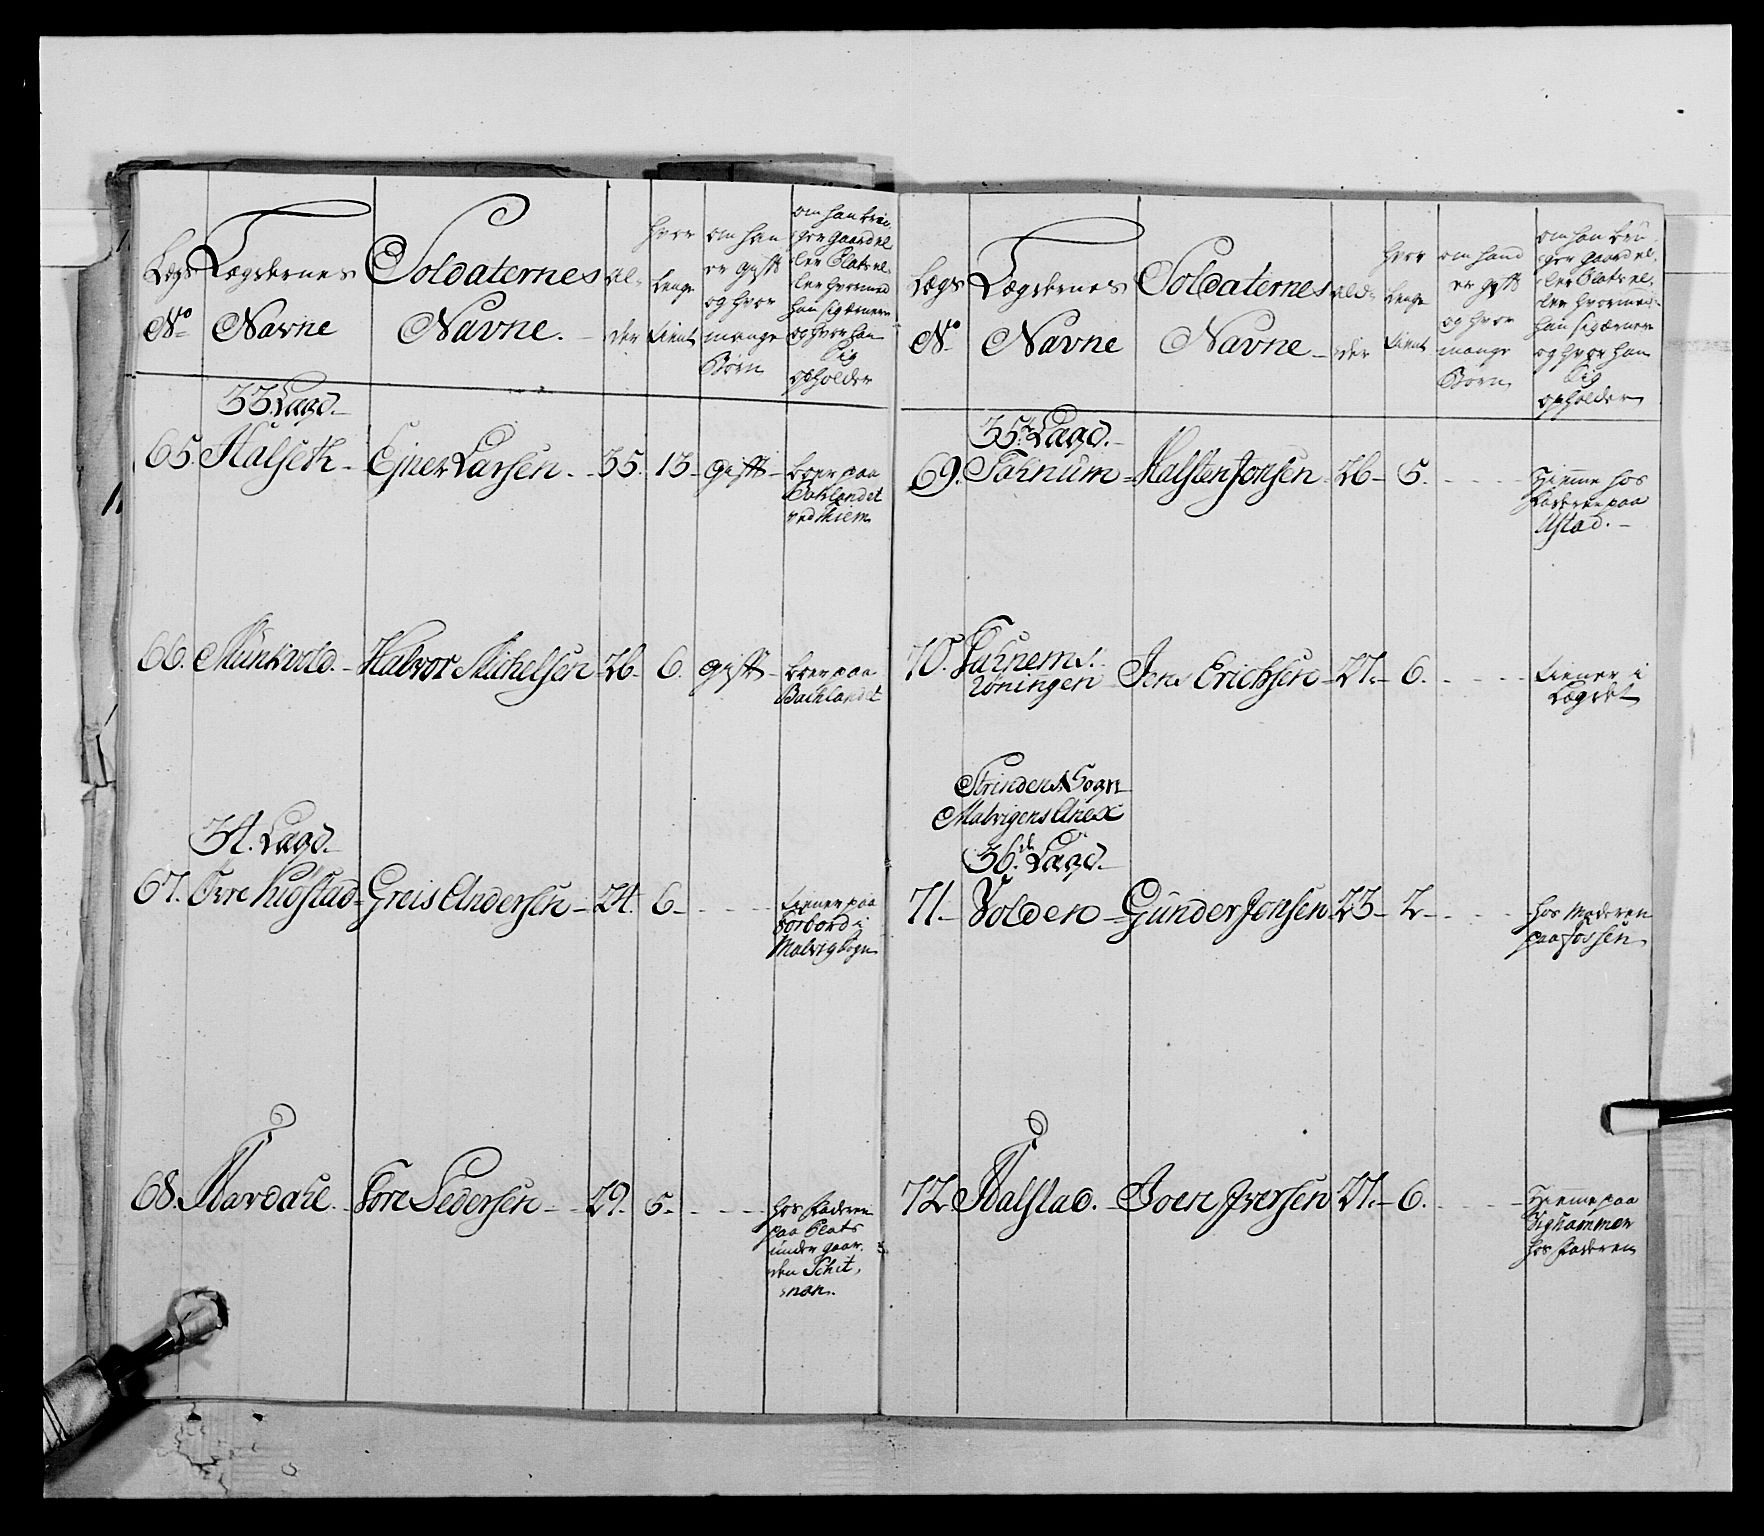 Lægs
No
Lægdernes
Navne
Soldaternes
Navne.
Al-
der
hvor
lenge
tient
om han
er gift
og hvor
mange
Børn
om han bru-
ger gaard el
ler Plats el-
ler hvormed
han sig ernerer
og hvor han
sig
opholder
33. Lægd.
65. Halseth - Ejner Larsen. 35. 13 - gift - boer paa
Baklandet
ved Thiem
66. Munkvold. - Halvor Michelsen 26. 6. gift - boer paa
Baklandet
34. Lægd.
67. - Greis Andersen - 24. 6 - tiener paa
Forbord i
Malvig Sogn
68. Mardahl - Tore Pedersen - 29. 5. hos Faderen
paa Plats
under gaar-
den Schit,
nan.
Lægs
No
Lægdernes
Navne
Soldaternes
Navne
Ald-
der
hvor
lenge
tient
om hand
er gift
og hvor
mange
Børn
om han bru-
ger gaard el-
ler Plats el-
ler hvormed
han sig ernerer
og hvor han
sig
opholder
35te Lægd.
69. - Halsten Jonsen 26 - 5. hiemme hos
Faderen paa
Ustad. -
70. - Jens Erichsen - 27. - 6. tiener i
Lægdet
Strindens Sogn
Malvigens Anex
36de Lægd.
71. - Volden - Gunder Jonsen 23 - 2 - hos Moderen
paa Fossen
72. Halstad. - Joen Jversen 27. - 6. hiemme paa
Vighammer
hos Faderen